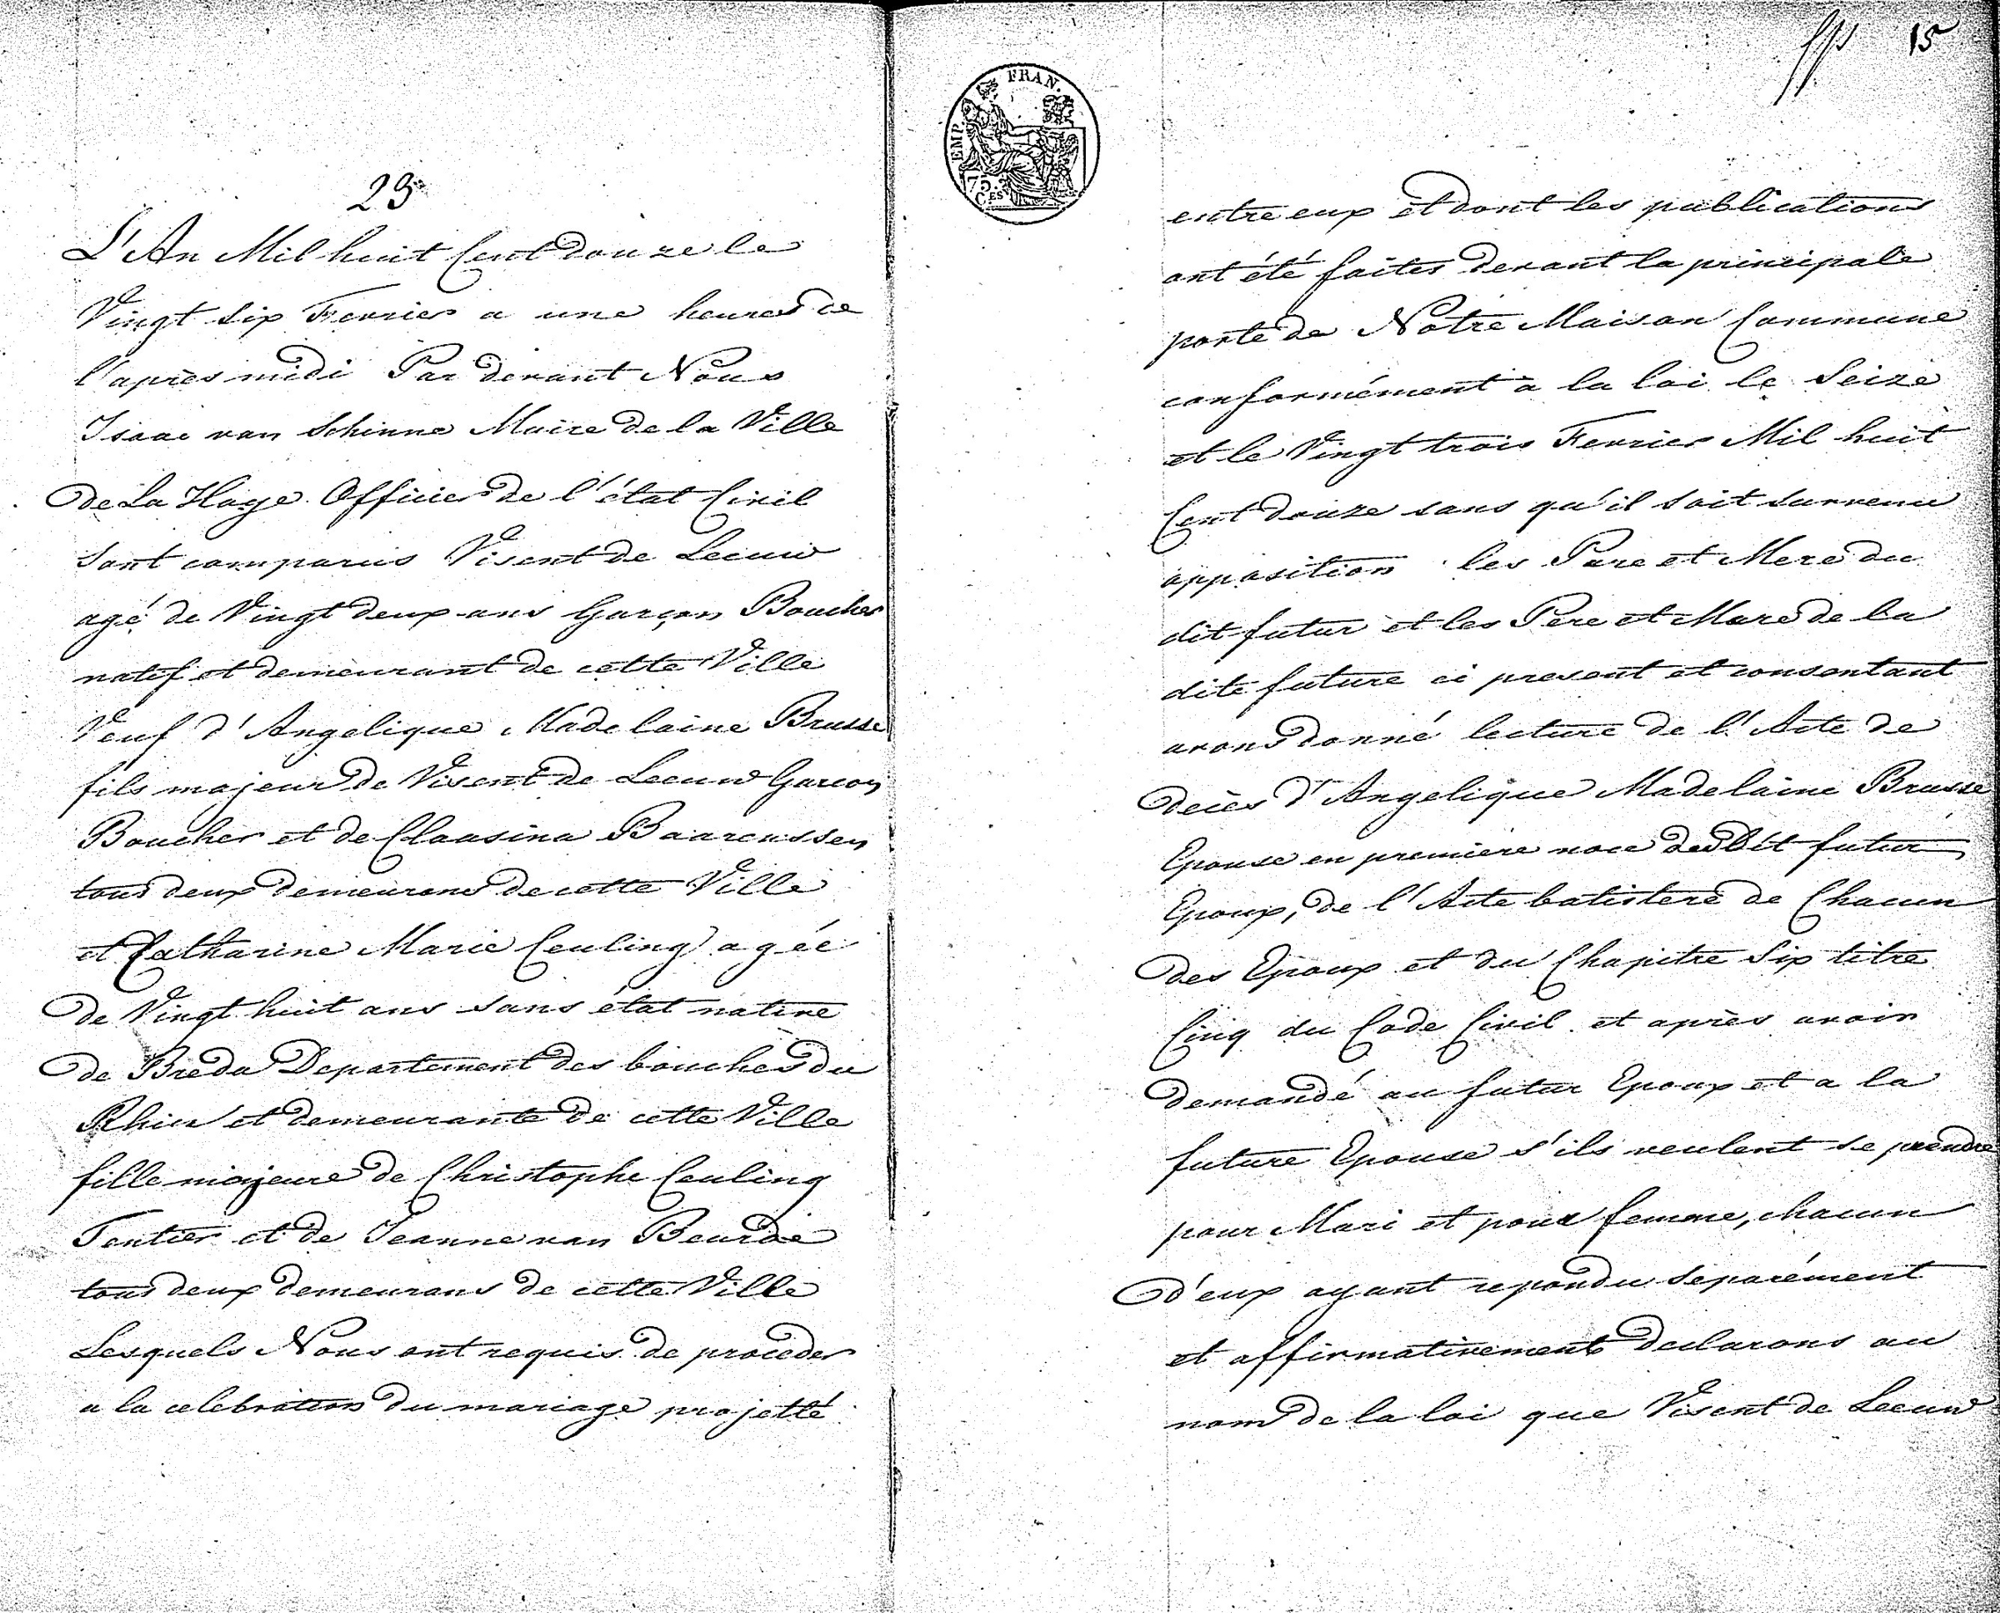 23
L'An Mil huit Cent douze le
Vingt Six Fevrier a une heures de
l'après midi Par devant Nous
Isaac van Schinne Maire de la Ville
de La Haye Officier de l'état Civil
sont comparus Visent de Leeuw
agé de Vingt deux ans Garçon Boucher
natif et demeurant de cette Ville
Veuf d'Angelique Madelaine Brusse
fils majeur de Visent de Leeuw Garcon
Boucher et de Claasina Baarenssen
tous deux demeurans de cette Ville
et Catharine Marie Ceuling agée
de Vingt huit ans sans état native
de Breda Departement des bouches du
Rhin et demeurante de cette Ville
fille majeure de Christophe Ceuling
Tentier et de Jeanne van Beurde
tous deux demeurans de cette Ville
Lesquels Nous ont requis de proceder
a la celebration du mariage projetté
EMP. FRAN.
75.
CES
15
entre eux et dont les publications
ont été faites devant la principale
porte de Notre Maison Commune
conformément à la loi le Seize
et le Vingt trois Fevrier Mil huit
Cent douze sans qu'il soit survenu
opposition les Pere et Mere du
dit futur et les Pere et Mere de la
dite future ci present et consentant
avons donné lecture de l'Acte de
deces d'Angelique Madelaine Brusse
Epouse en premiere noce dudit futur
Epoux, de l'Acte batistere de Chacun
des Epoux et du Chapitre Six titre
Cinq du Code Civil et après avoir
demandé au futur Epoux et a la
future Epouse s'ils veulent se prendre
pour Mari et pour femme, chacun
d'eux ayant repondu separément
et affirmativement declarons au
nom de la loi que Visent de Leeuw